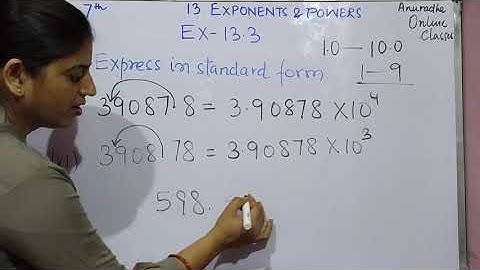 7th 13 EXPONENTS & POWERS
Anuradha Online Classes
EX-13.3
1.0 — 10.0
Express in standard form
1 — 9
39087.8 = 3.90878 × 10⁴
3908.78 = 3.90878 × 10³
598.